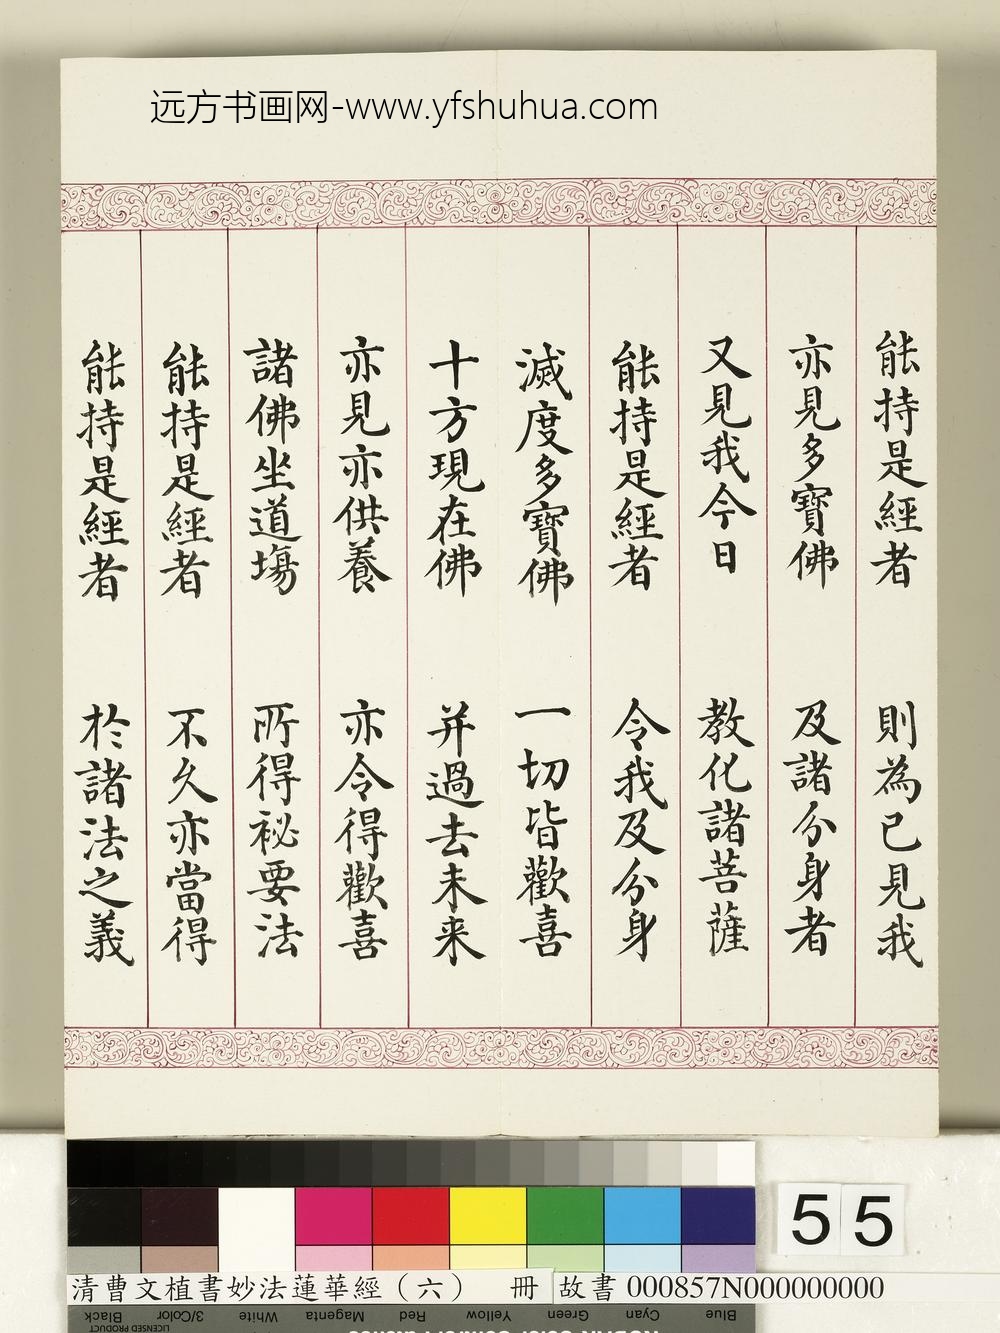 远方书画网-www.yfshuhua.com
能持是經者 則為已見我
亦見多寶佛 及諸分身者
又見我今日 教化諸菩薩
能持是經者 令我及分身
滅度多寶佛 一切皆歡喜
十方現在佛 并過去未来
亦見亦供養 亦令得歡喜
諸佛坐道場 所得祕要法
能持是經者 不久亦當得
能持是經者 於諸法之義
55
清曹文植書妙法蓮華經（六） 冊 故書 000857N000000000
Blue Cyan Green Yellow Red Magenta White 3/Color Black
LICENSED PRODUCT